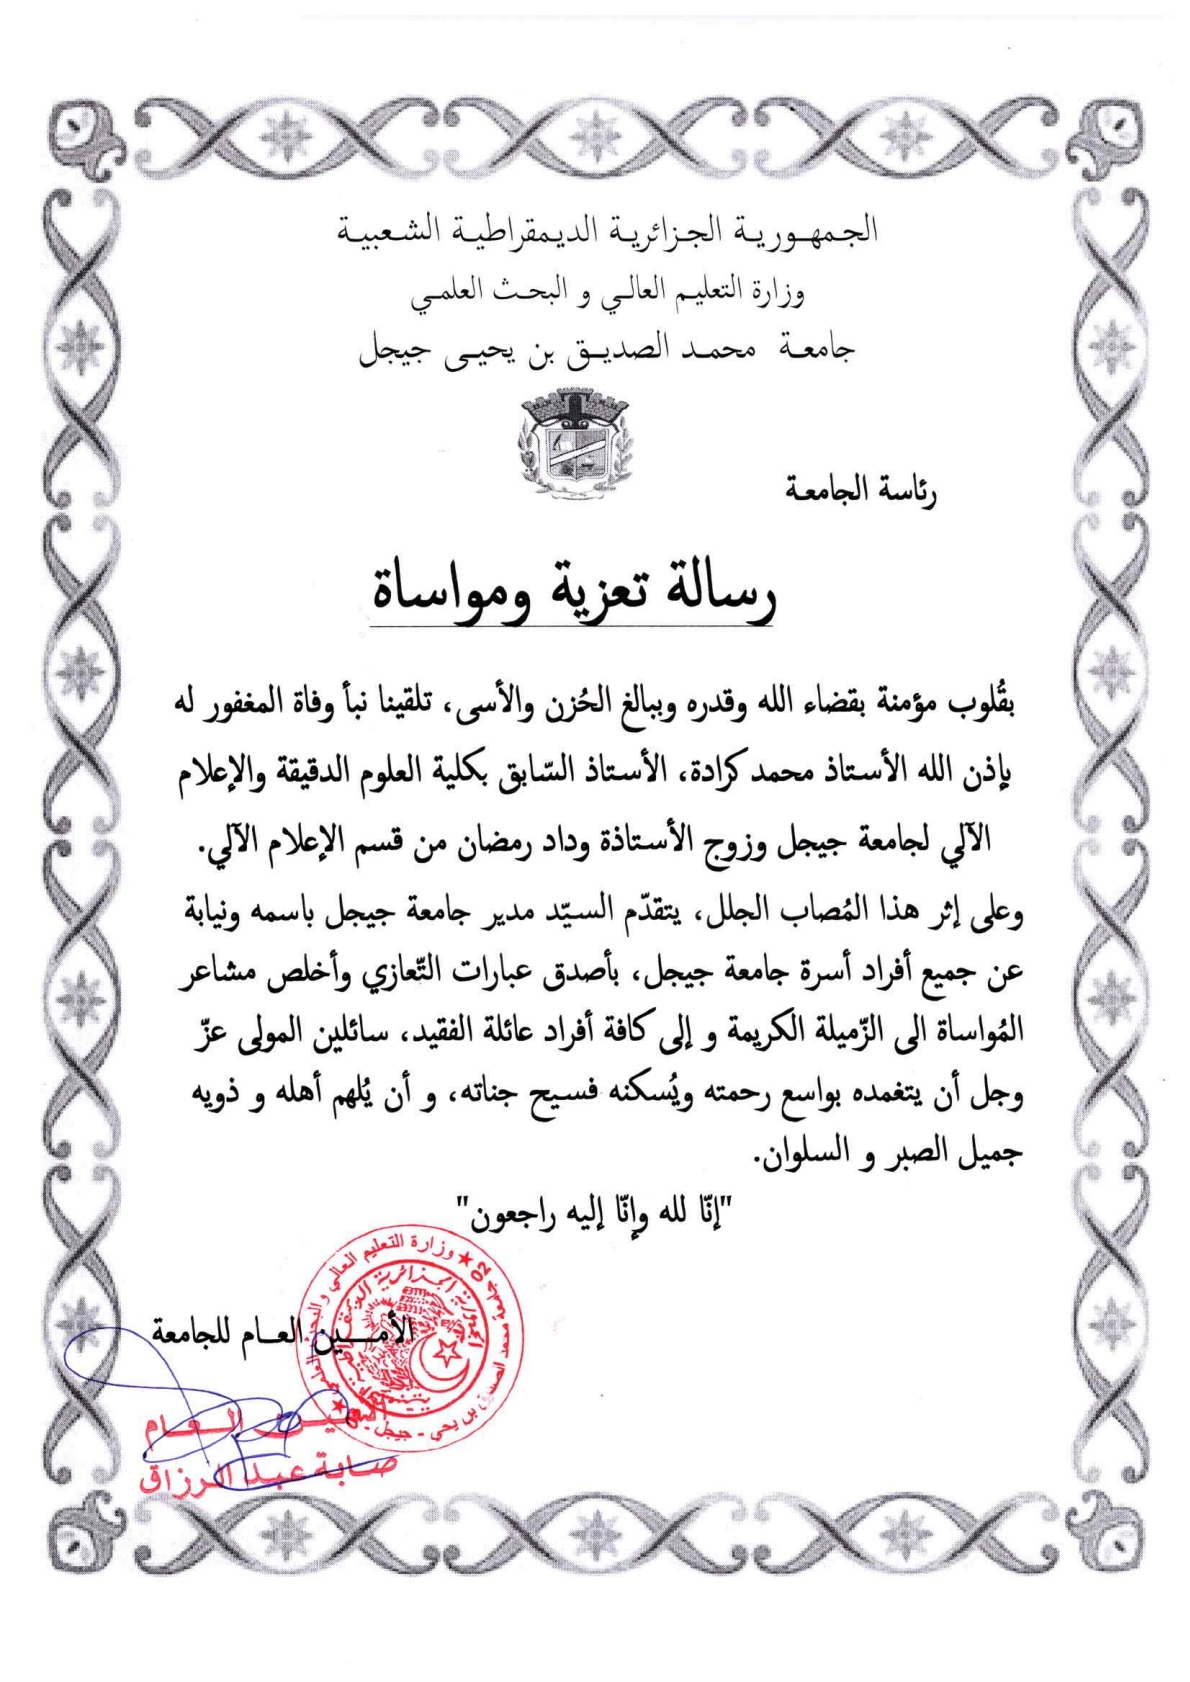 الجمهورية الجزائرية الديمقراطية الشعبية
وزارة التعليم العالي و البحث العلمي
جامعة محمد الصديق بن يحيى جيجل
رئاسة الجامعة
رسالة تعزية ومواساة
بقُلوب مؤمنة بقضاء الله وقدره وببالغ الحُزن والأسى، تلقينا نبأ وفاة المغفور له
بإذن الله الأستاذ محمد كرادة، الأستاذ السّابق بكلية العلوم الدقيقة والإعلام
الآلي لجامعة جيجل وزوج الأستاذة وداد رمضان من قسم الإعلام الآلي.
وعلى إثر هذا المُصاب الجلل، يتقدّم السيّد مدير جامعة جيجل باسمه ونيابة
عن جميع أفراد أسرة جامعة جيجل، بأصدق عبارات التّعازي وأخلص مشاعر
المُواساة الى الزّميلة الكريمة و إلى كافة أفراد عائلة الفقيد، سائلين المولى عزّ
وجل أن يتغمده بواسع رحمته ويُسكنه فسيح جناته، و أن يُلهم أهله و ذويه
جميل الصبر و السلوان.
"إنّا لله وإنّا إليه راجعون"
وزارة التعليم العالي والبحث العلمي
جامعة محمد الصديق بن يحي - جيجل
02
الأمين العام للجامعة
الأمين العام
صابة عبد الرزاق